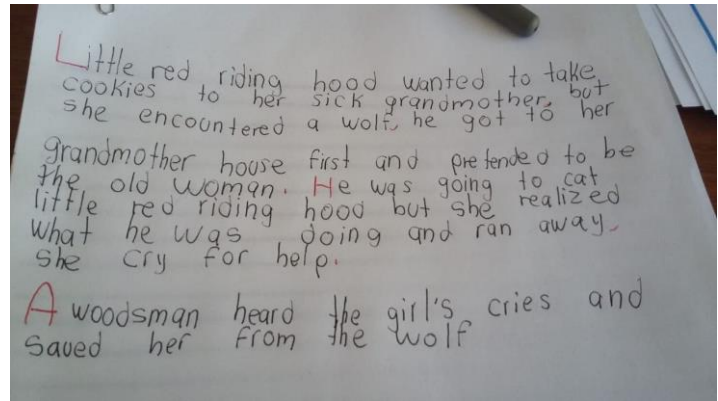 Little red riding hood wanted to take
cookies to her sick grandmother, but
she encountered a wolf, he got to her
grandmother house first and pretended to be
the old woman. He was going to eat
little red riding hood but she realized
what he was doing and ran away,
she cry for help.
A woodsman heard the girl's cries and
saved her from the wolf